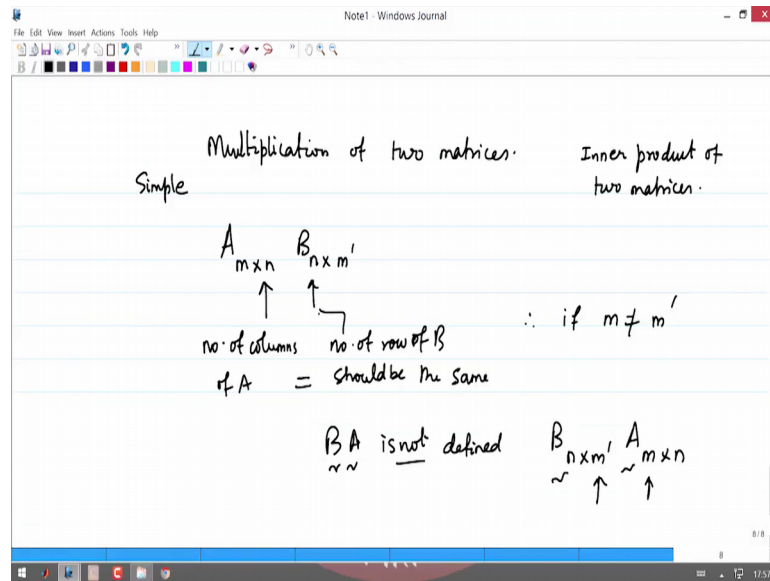 Note1 - Windows Journal
File Edit View Insert Actions Tools Help
B I
Multiplication of two matrices.
Inner product of
two matrices.
Simple
A m×n B n×m'
no. of columns no. of row of B
of A = should be the same
∴ if m ≠ m'
BA is not defined B n×m' A m×n
8/8
8
17:57